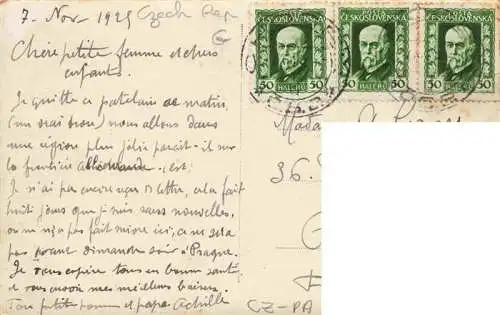 7. Nov. 1925 Czech Rep
Chère petite femme et chers
enfants.
Je quitte ce patelain ce matin,
(un vrai trou), nous allons dans
une région plus jolie parait-il sur
la frontière allemande (est)
Je n'ai pas encore reçu 1 lettre, cela fait
huit jours que je suis sans nouvelles,
on ne m'a pas fait suivre ici, ce ne sera
pas avant dimanche soir à Prague.
Je vous espère tous en bonne santé
et vous envoie mes meilleurs baisers.
Ton petit homme et papa Achille
POŠTA
ČESKOSLOVENSKÁ
50 HALÉŘŮ 50
POŠTA
ČESKOSLOVENSKÁ
50 HALÉŘŮ 50
POŠTA
ČESKOSLOVENSKÁ
50 HALÉŘŮ 50
Mada
36.
CZ-PA